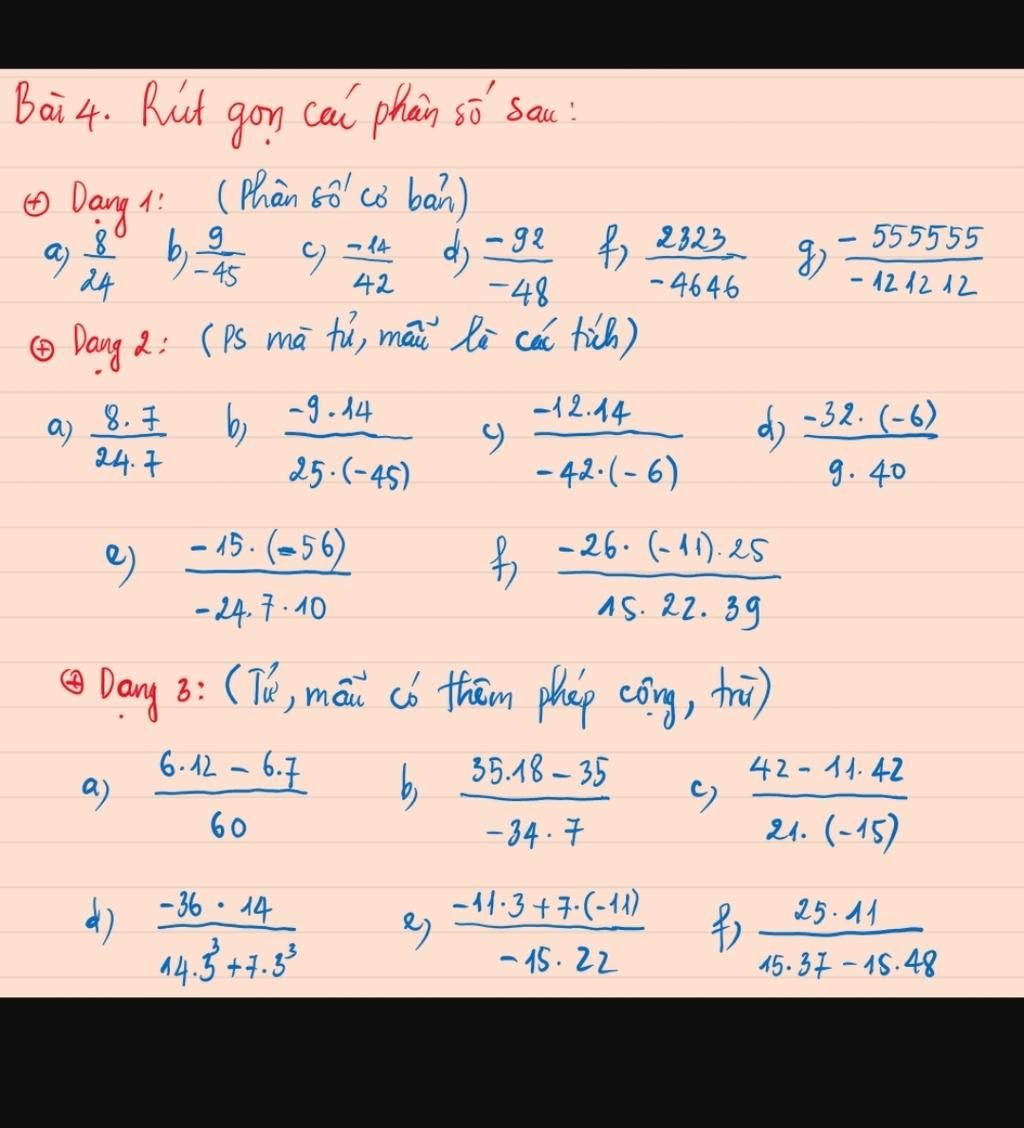 Bài 4. Rút gọn các phân số sau:
⊕ Dạng 1: (Phân số cơ bản)
a) 8/24 b) 9/-45 c) -14/42 d) -92/-48 f) 2323/-4646 g) -555555/-121212
⊕ Dạng 2: (PS mà tử, mẫu là các tích)
a) 8.7/24.7 b) -9.14/25.(-45) c) -12.14/-42.(-6) d) -32.(-6)/9.40
e) -15.(-56)/-24.7.10 f) -26.(-11).25/15.22.39
⊕ Dạng 3: (Tử, mẫu có thêm phép cộng, trừ)
a) 6.12 - 6.7/60 b) 35.18 - 35/-34.7 c) 42 - 11.42/21.(-15)
d) -36.14/14.3³ + 7.3³ e) -11.3 + 7.(-11)/-15.22 f) 25.11/15.37 - 15.48